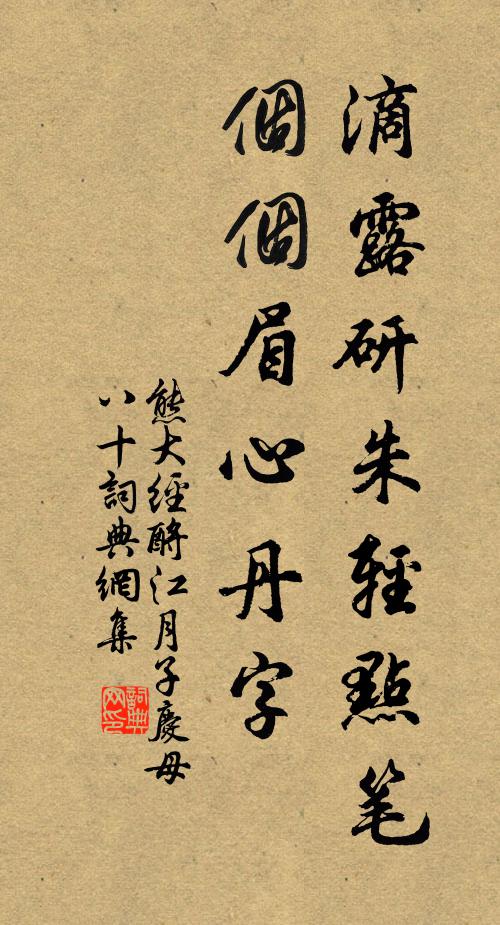 滴露研朱輕點笔
個個眉心丹字
熊大經酹江月子慶母
八十詞典網集
詞典
网印